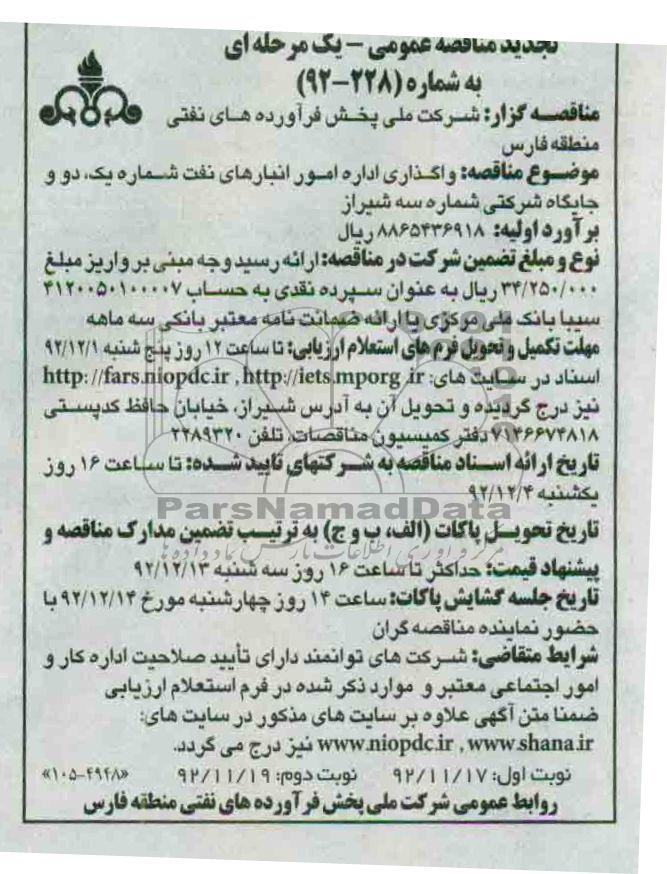 تجدید مناقصه عمومی – یک مرحله ای
به شماره (۲۲۸-۹۲)
مناقصه گزار: شرکت ملی پخش فرآورده های نفتی
منطقه فارس
موضوع مناقصه: واگذاری اداره امور انبارهای نفت شماره یک، دو و
جایگاه شرکتی شماره سه شیراز
برآورد اولیه: ۸۸۶۵۴۳۶۹۱۸ ریال
نوع و مبلغ تضمین شرکت در مناقصه: ارائه رسید وجه مبنی بر واریز مبلغ
۳۴/۲۵۰/۰۰۰ ریال به عنوان سپرده نقدی به حساب ۴۱۲۰۰۵۰۱۰۰۰۰۷
سیبا بانک ملی مرکزی یا ارائه ضمانت نامه معتبر بانکی سه ماهه
مهلت تکمیل و تحویل فرم های استعلام ارزیابی: تا ساعت ۱۲ روز پنج شنبه ۹۲/۱۲/۱
اسناد در سایت های: http://fars.niopdc.ir , http://iets.mporg.ir
نیز درج گردیده و تحویل آن به آدرس شیراز، خیابان حافظ کدپستی
۷۱۴۶۶۷۴۸۱۸ دفتر کمیسیون مناقصات، تلفن ۲۲۸۹۳۲۰
تاریخ ارائه اسناد مناقصه به شرکتهای تایید شده: تا ساعت ۱۶ روز
یکشنبه ۹۲/۱۲/۴
ParsNamadData
تاریخ تحویل پاکات (الف، ب و ج) به ترتیب تضمین مدارک مناقصه و
پیشنهاد قیمت: حداکثر تا ساعت ۱۶ روز سه شنبه ۹۲/۱۲/۱۳
تاریخ جلسه گشایش پاکات: ساعت ۱۴ روز چهارشنبه مورخ ۹۲/۱۲/۱۴ با
حضور نماینده مناقصه گران
شرایط متقاضی: شرکت های توانمند دارای تأیید صلاحیت اداره کار و
امور اجتماعی معتبر و موارد ذکر شده در فرم استعلام ارزیابی
ضمنا متن آگهی علاوه بر سایت های مذکور در سایت های:
www.niopdc.ir , www.shana.ir نیز درج می گردد.
نوبت اول: ۹۲/۱۱/۱۷ نوبت دوم: ۹۲/۱۱/۱۹ «۱۰۵-۴۹۴۸»
روابط عمومی شرکت ملی پخش فرآورده های نفتی منطقه فارس